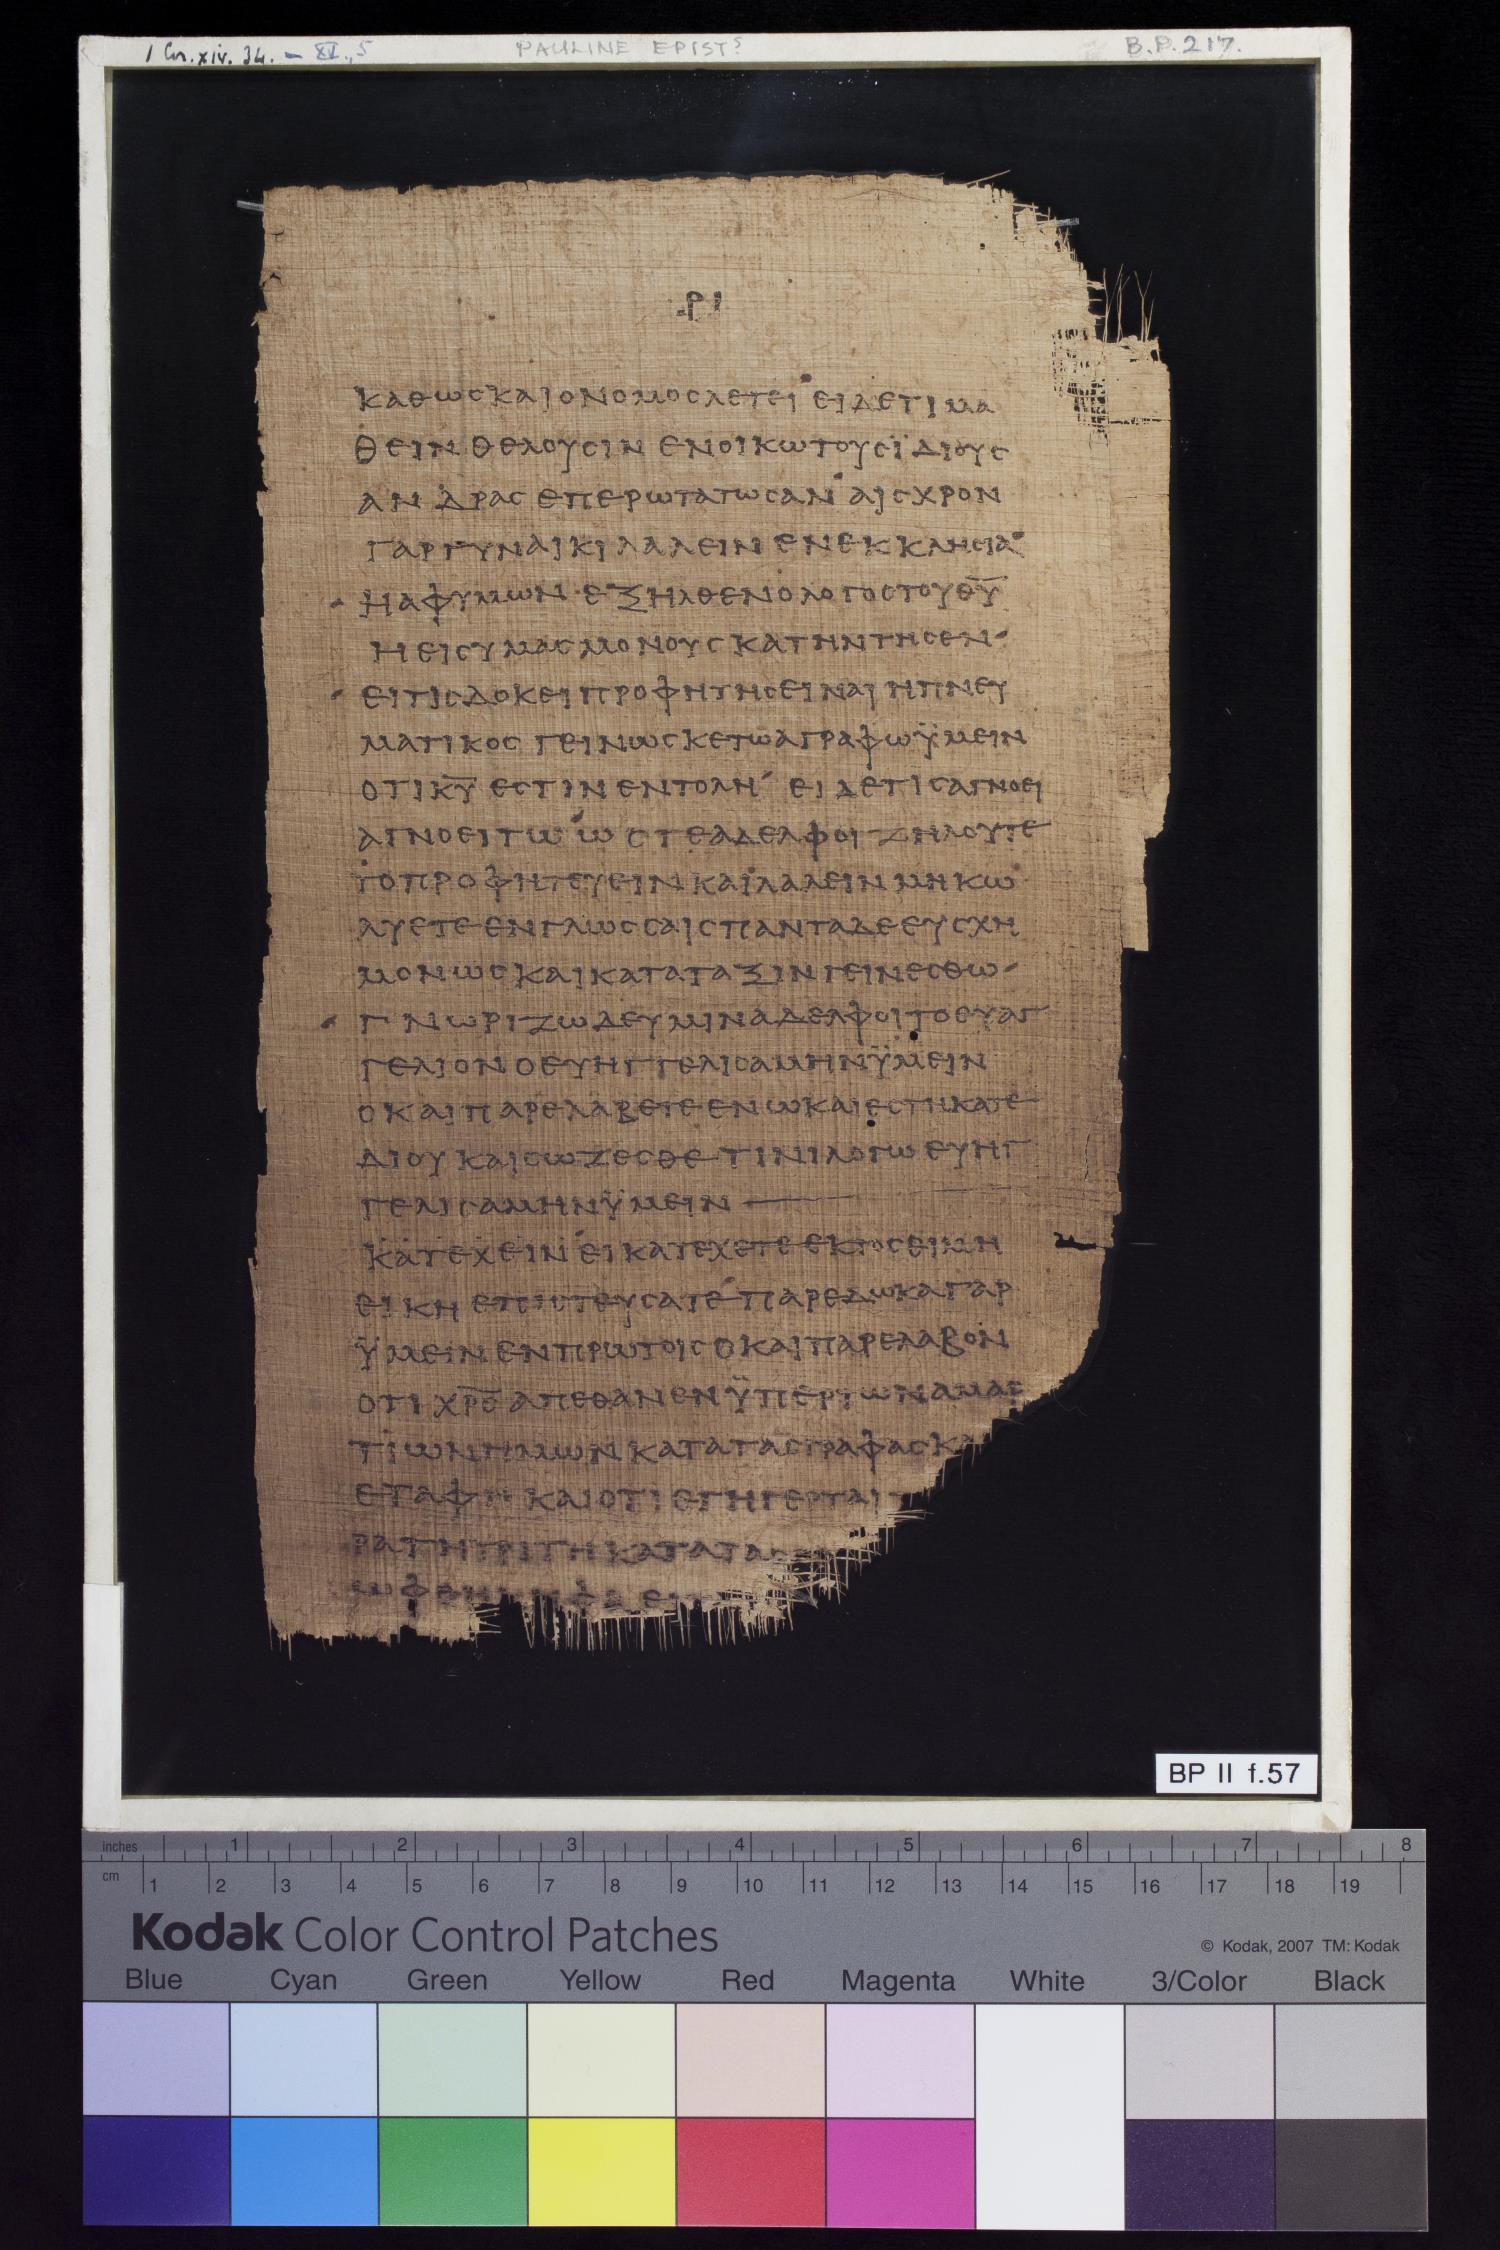 1 Cor. xiv. 34. – XV., 5 PAULINE EPISTS B.P. 217.
ΡΙ
ΚΑΘΩϹΚΑΙΟΝΟΜΟϹΛΕΓΕΙ ΕΙΔΕΤΙΜΑ
ΘΕΙΝΘΕΛΟΥϹΙΝ ΕΝΟΙΚΩΤΟΥϹΪΔΙΟΥϹ
ΑΝΔΡΑϹΕΠΕΡΩΤΑΤΩϹΑΝ ΑΙϹΧΡΟΝ
ΓΑΡΓΥΝΑΙΚΙΛΑΛΕΙΝΕΝΕΚΚΛΗϹΙΑ
ΗΑΦΥΜΩΝΕΞΗΛΘΕΝΟΛΟΓΟϹΤΟΥΘ̅Υ̅
ΗΕΙϹΥΜΑϹΜΟΝΟΥϹΚΑΤΗΝΤΗϹΕΝ
ΕΙΤΙϹΔΟΚΕΙΠΡΟΦΗΤΗϹΕΙΝΑΙΗΠΝΕΥ
ΜΑΤΙΚΟϹΓΕΙΝΩϹΚΕΤΩΑΓΡΑΦΩΫΜΕΙΝ
ΟΤΙΚ̅Υ̅ΕϹΤΙΝΕΝΤΟΛΗ ΕΙΔΕΤΙϹΑΓΝΟΕΙ
ΑΓΝΟΕΙΤΩ ΩϹΤΕΑΔΕΛΦΟΙΖΗΛΟΥΤΕ
ΤΟΠΡΟΦΗΤΕΥΕΙΝΚΑΙΛΑΛΕΙΝΜΗΚΩ
ΛΥΕΤΕΕΝΓΛΩϹϹΑΙϹΠΑΝΤΑΔΕΕΥϹΧΗ
ΜΟΝΩϹΚΑΙΚΑΤΑΤΑΞΙΝΓΕΙΝΕϹΘΩ
ΓΝΩΡΙΖΩΔΕΥΜΙΝΑΔΕΛΦΟΙΤΟΕΥΑΓ
ΓΕΛΙΟΝΟΕΥΗΓΓΕΛΙϹΑΜΗΝΫΜΕΙΝ
ΟΚΑΙΠΑΡΕΛΑΒΕΤΕΕΝΩΚΑΙΕϹΤΗΚΑΤΕ
ΔΙΟΥΚΑΙϹΩΖΕϹΘΕΤΙΝΙΛΟΓΩΕΥΗΓ
ΓΕΛΙϹΑΜΗΝΫΜΕΙΝ
ΚΑΤΕΧΕΙΝ ΕΙΚΑΤΕΧΕΤΕΕΚΤΟϹΕΙΜΗ
ΕΙΚΗΕΠΙϹΤΕΥϹΑΤΕ ΠΑΡΕΔΩΚΑΓΑΡ
ΫΜΕΙΝΕΝΠΡΩΤΟΙϹΟΚΑΙΠΑΡΕΛΑΒΟΝ
ΟΤΙΧ̅Ρ̅Ϲ̅ΑΠΕΘΑΝΕΝΫΠΕΡΤΩΝΑΜΑΡ
ΤΙΩΝΗΜΩΝΚΑΤΑΤΑϹΓΡΑΦΑϹΚΑΙ
ΕΤΑΦΗΚΑΙΟΤΙΕΓΗΓΕΡΤΑΙΤ
ΡΑΤΗΤΡΙΤΗΚΑΤΑΤΑ
ΩΦΘΗ
BP II f.57
inches 1 2 3 4 5 6 7 8
cm 1 2 3 4 5 6 7 8 9 10 11 12 13 14 15 16 17 18 19
Kodak Color Control Patches © Kodak, 2007 TM: Kodak
Blue Cyan Green Yellow Red Magenta White 3/Color Black